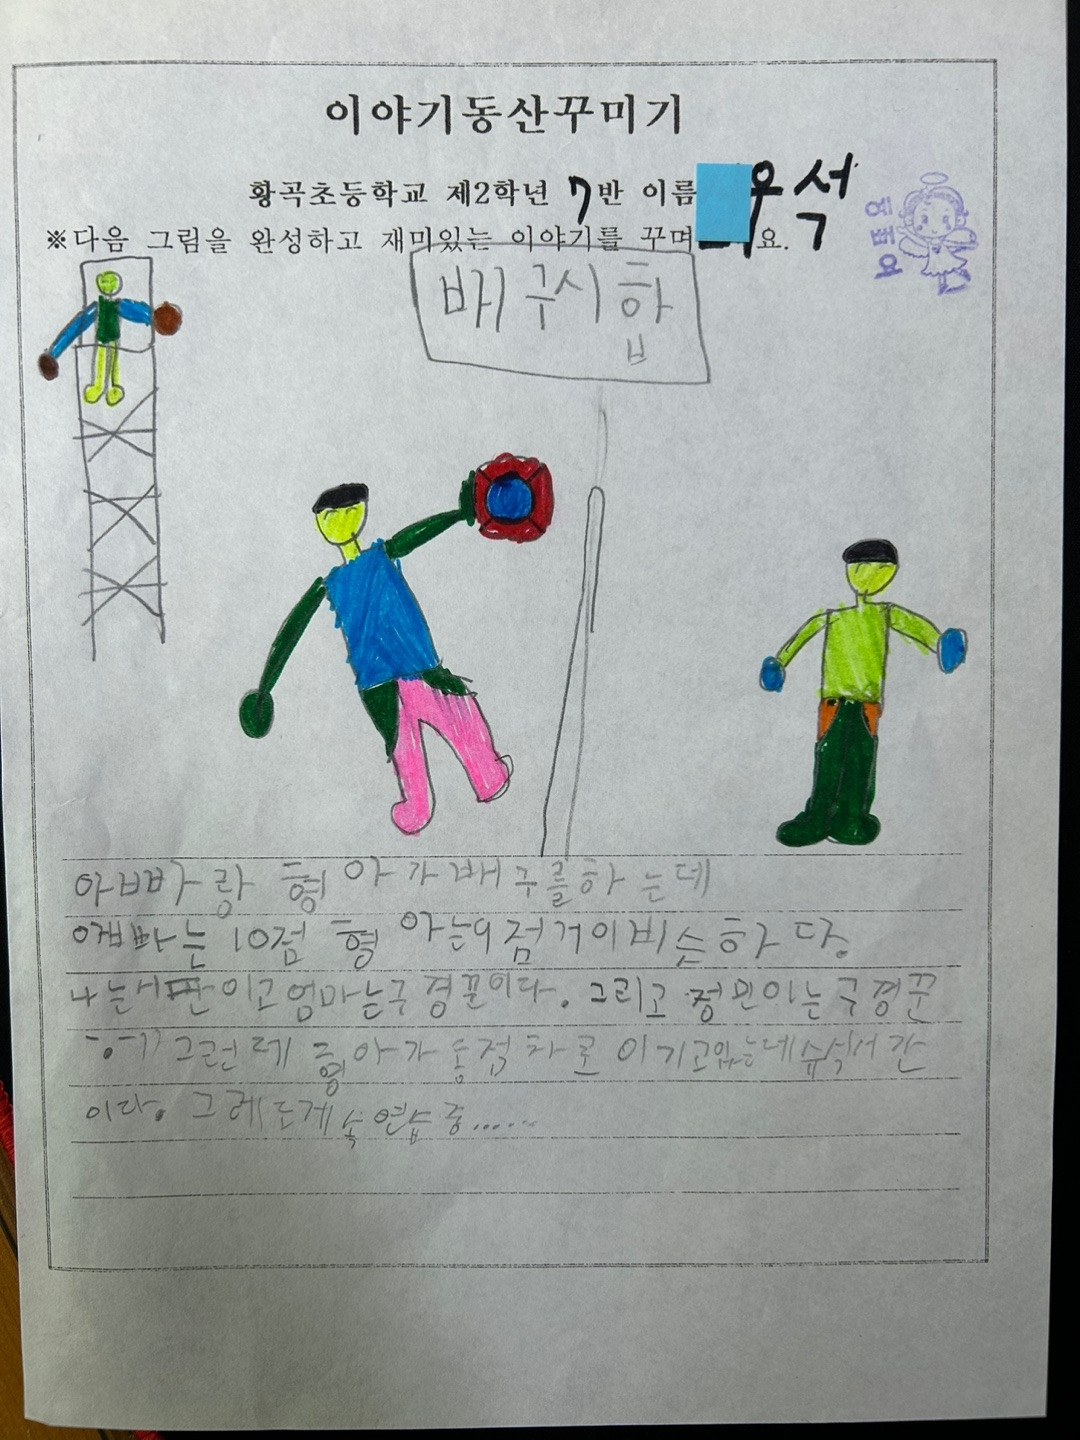 이야기동산꾸미기
황곡초등학교 제2학년 7반 이름 우석
※다음 그림을 완성하고 재미있는 이야기를 꾸며 요.
보 띄요
배구시합
아빠랑 형아가배구를하는데
아빠는 10점 형아는9점거이비슷하다.
나는시판이고엄마는구경꾼이다. 그리고 정민이는구경꾼
그런데 형아가 동점차로 이기고있는데 휴식시간
이다. 그레도게속연습중......